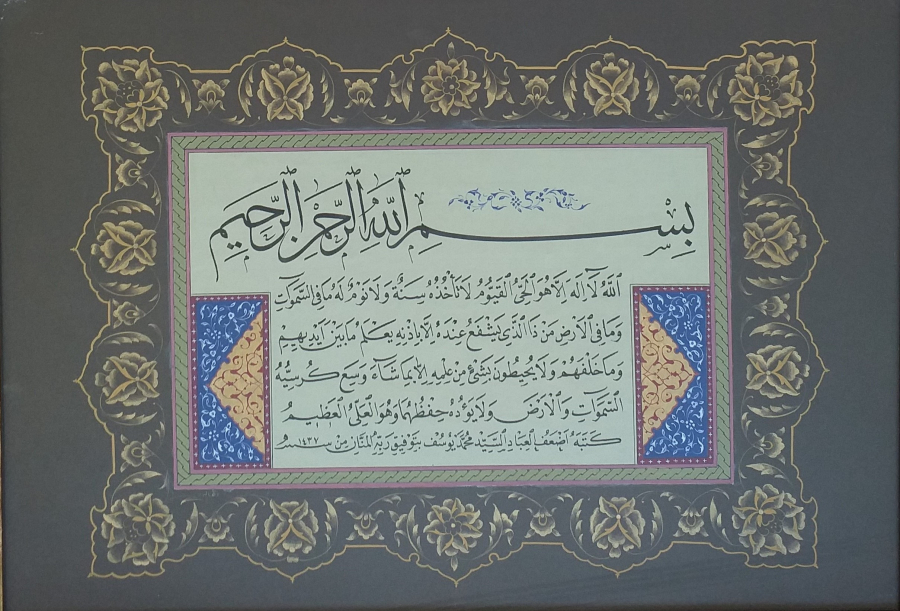 بِسْمِ اللهِ الرَّحْمٰنِ الرَّحِيمِ
اَللهُ لَآ اِلٰهَ اِلَّا هُوَ الْحَىُّ الْقَيُّومُ لَا تَأْخُذُهُ سِنَةٌ وَلَا نَوْمٌ لَهُ مَا فِى السَّمٰوَاتِ
وَمَا فِى الْاَرْضِ مَنْ ذَا الَّذِى يَشْفَعُ عِنْدَهُ اِلَّا بِاِذْنِهِ يَعْلَمُ مَا بَيْنَ اَيْدِيهِمْ
وَمَا خَلْفَهُمْ وَلَا يُحِيطُونَ بِشَىْءٍ مِنْ عِلْمِهِ اِلَّا بِمَا شَآءَ وَسِعَ كُرْسِيُّهُ
السَّمٰوَاتِ وَالْاَرْضَ وَلَا يَؤُدُهُ حِفْظُهُمَا وَهُوَ الْعَلِىُّ الْعَظِيمُ
كَتَبَهُ اَضْعَفُ الْعِبَادِ السَّيِّد مُحَمَّد يُوسُف بِتَوْفِيقِ رَبِّهِ الْمَنَّانِ مِنْ سنة ١٤٣٢